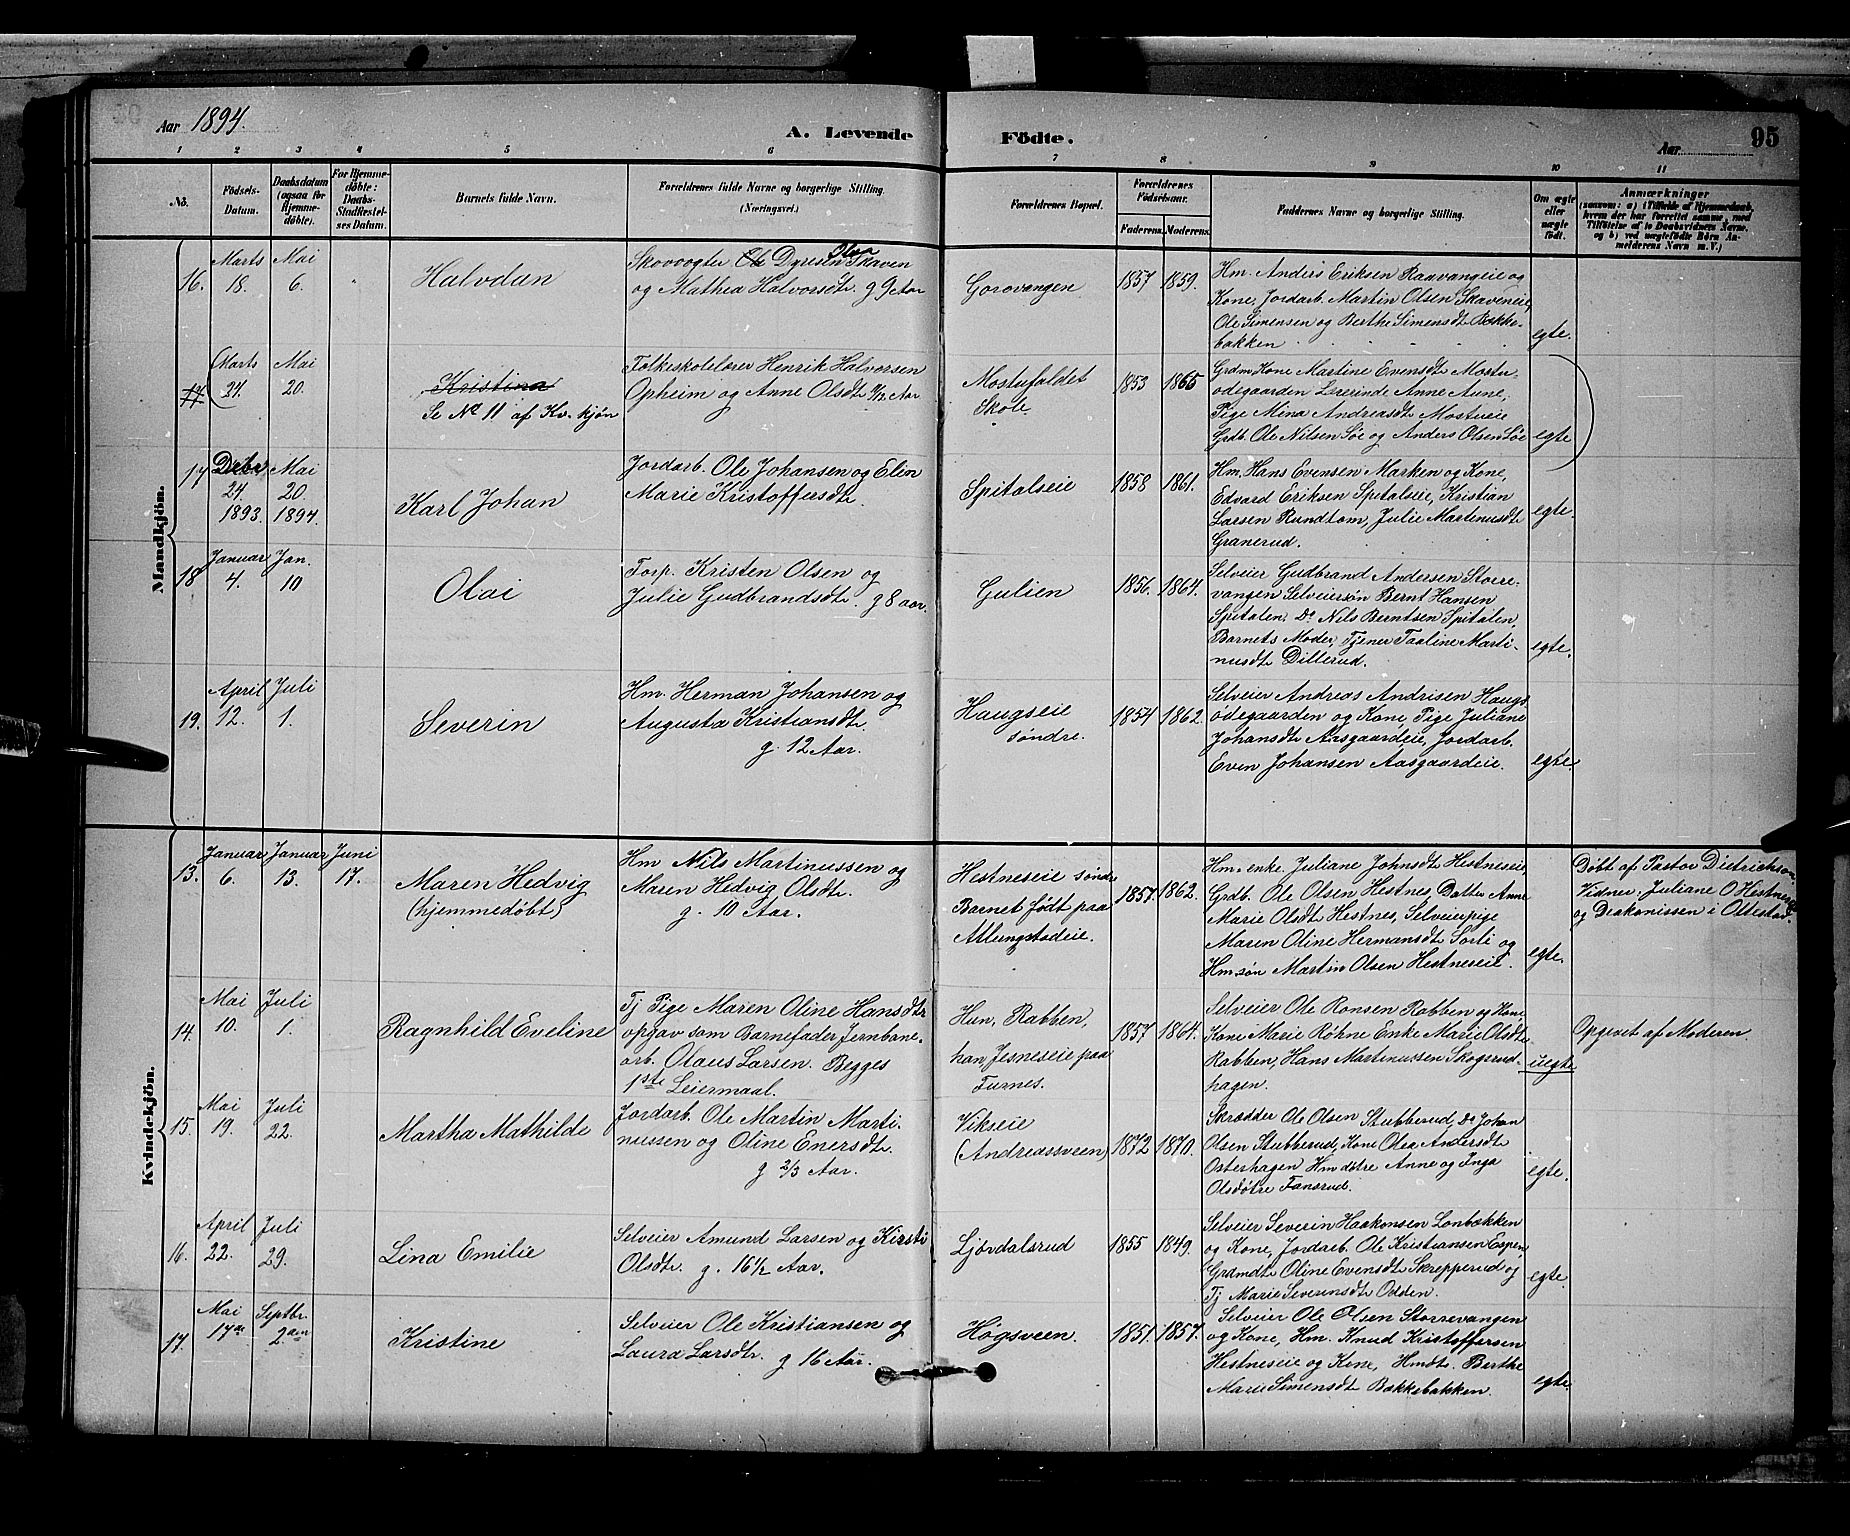 Aar 1894.
A. Levende Födte.
Aar
95
1 2 3 4 5 6 7 8 9 10 11
No.
Födsels-
Datum.
Daabsdatum
(ogsaa for
Hjemme-
döbte).
For Hjemme-
döbte:
Daabs-
Stadfæstel-
ses Datum.
Barnets fulde Navn.
Forældrenes fulde Navne og borgerlige Stilling.
(Næringsvei.)
Forældrenes Bopæl.
Forældrenes
Födselsaar.
Faderens. Moderens.
Faddernes Navne og borgerlige Stilling.
Om ægte
eller
uægte
födt.
Anmærkninger
(saasom: a) i Tilfælde af Hjemmedaab,
hvem der har forrettet samme, med
Tilföielse af to Daabsvidners Navne.
og b) ved uægtefödte Börn An-
melderens Navn m. V.)
Mandkjön.
16.
Marts
18.
Mai
6.
"
Halvdan
Skovvogter Ole Dyresen Skaven
Olsa
og Mathea Halvorsdtr. g 9 Aar
Gorovangen
1857 1859.
Hm. Anders Eriksen Raavangeie og
Kone, Jordarb. Martin Olsen Skaveneie,
Ole Simensen og Berthe Simensdtr Bække-
bakken
egte.
17
Marts
24.
Mai
20.
Kristina
Se No 11 af Kv. kjøn
Folkeskolelærer Henrik Halvorsen
Opheim og Anne Olsdtr 1/2 Aar
Mostufaldet
Skole
1853 1865
Grdm Kone Martine Evensdtr Mostu-
ødegaarden Lærerinde Anne Aune,
Pige Mina Andreasdtr Mostueie
Grdb. Ole Nilsen Søe og Anders Olsen Søe
egte
17
Decbr
24.
1893.
Mai
20.
1894.
Karl Johan
Jordarb. Ole Johansen og Elen
Marie Kristoffersdtr.
Spitalseie
1858 1861.
Hm. Hans Evensen Marken og Kone,
Edvard Eriksen Spitalseie, Kristian
Larsen Rundtom, Julie Martinusdtr
Granerud.
egte.
18
Januar
4.
Jan.
10
Olai
Torp. Kristen Olsen og
Julie Gudbrandsdtr. g 8 aar.
Gulien
1856. 1864.
Selveier Gudbrand Andersen Storre-
vangen Selveiersøn Bernt Hansen
Spitalen. Do Nils Berntsen Spitalen,
Barnets Moder, Tjener Paaline Marti-
nusdtr Dillerud.
egte.
19.
April
12.
Juli
1.
Severin
Hm. Herman Johansen og
Augusta Kristiansdtr.
g. 12 Aar.
Haugseie
søndre.
1854 1862.
Selveier Andreas Andrisen Haugs
ødegaarden og Kone, Pige Juliane
Johansdtr Aasgaardeie, Jordarb.
Even Johansen Aasgaardeie.
egte.
Kvindekjön.
13.
Januar
6.
Januar
13.
Juni
17.
Maren Hedvig
(hjemmedøbt)
Hm Nils Martinussen og
Maren Hedvig Olsdtr.
g. 10 Aar.
Hestneseie søndre
Barnet født paa
Atlungstadeie.
1857. 1862.
Hm. enke. Juliane Johnsdtr Hestneseie,
Grdb. Ole Olsen Hestnes Datter Anne
Marie Olsdtr Hestnes, Selveierpige
Maren Oline Hermansdtr Sorli og
Hm. søn Martin Olsen Hestneseie.
egte.
Døbt af Pastor Dietrichson
Vidner: Juliane O Hestnes
og Diakonissen i Ottestad
14.
Mai
10.
Juli
1.
Ragnhild Eveline
Tj Pige Maren Oline Hansdtr
opgav som Barnefader Jernbane-
arb. Olaus Larsen. Begges
1ste Leiermaal.
Hun, Rabben,
han Jesneseie paa
Furnes.
1857 1864.
Selveier Ole Ronsen Rabben og Kone
Kone Marie Røhne Enke Marie Olsdtr
Rabben, Hans Martinussen Skogsrud-
hagen.
uegte
Opgevet af Moderen.
15.
Mai
19.
Juli
22.
Martha Mathilde
Jordarb. Ole Martin Marti-
nussen og Oline Enersdtr.
g 2/3 Aar.
Vikseie
(Andreassveen)
1872 1870.
Skrædder Ole Olsen Stubberud, Do Johan
Olsen Stubberud, Kone Olea Andersdtr
Østerhagen Hm døtre Anne og Inga
Olsdøtre Fansrud.
egte.
16.
April
22.
Juli
29.
Lina Emilie
Selveier Amund Larsen og Kirsti
Olsdtr. g. 16 1/2 Aar.
Ljøvdalsrud
1855 1849.
Selveier Severin Haakonsen Lonbækken
og Kone, Jordarb. Ole Kristiansen Espen,
Grdmdtr Oline Evensdtr Skrepperud og
Tj Marie Severinsdtr Odden.
egte.
17.
Mai
17de
Septbr.
2den
Kristine
Selveier Ole Kristiansen og
Laura Larsdtr. g 16 Aar.
Høgsveen.
1851. 1857.
Selveier Ole Olsen Storrevangen
og Kone, Hm. Knud Kristoffersen
Hestneseie og Kone, Hmdtr. Berthe
Marie Simensdtr Bakkebakken.
egte.